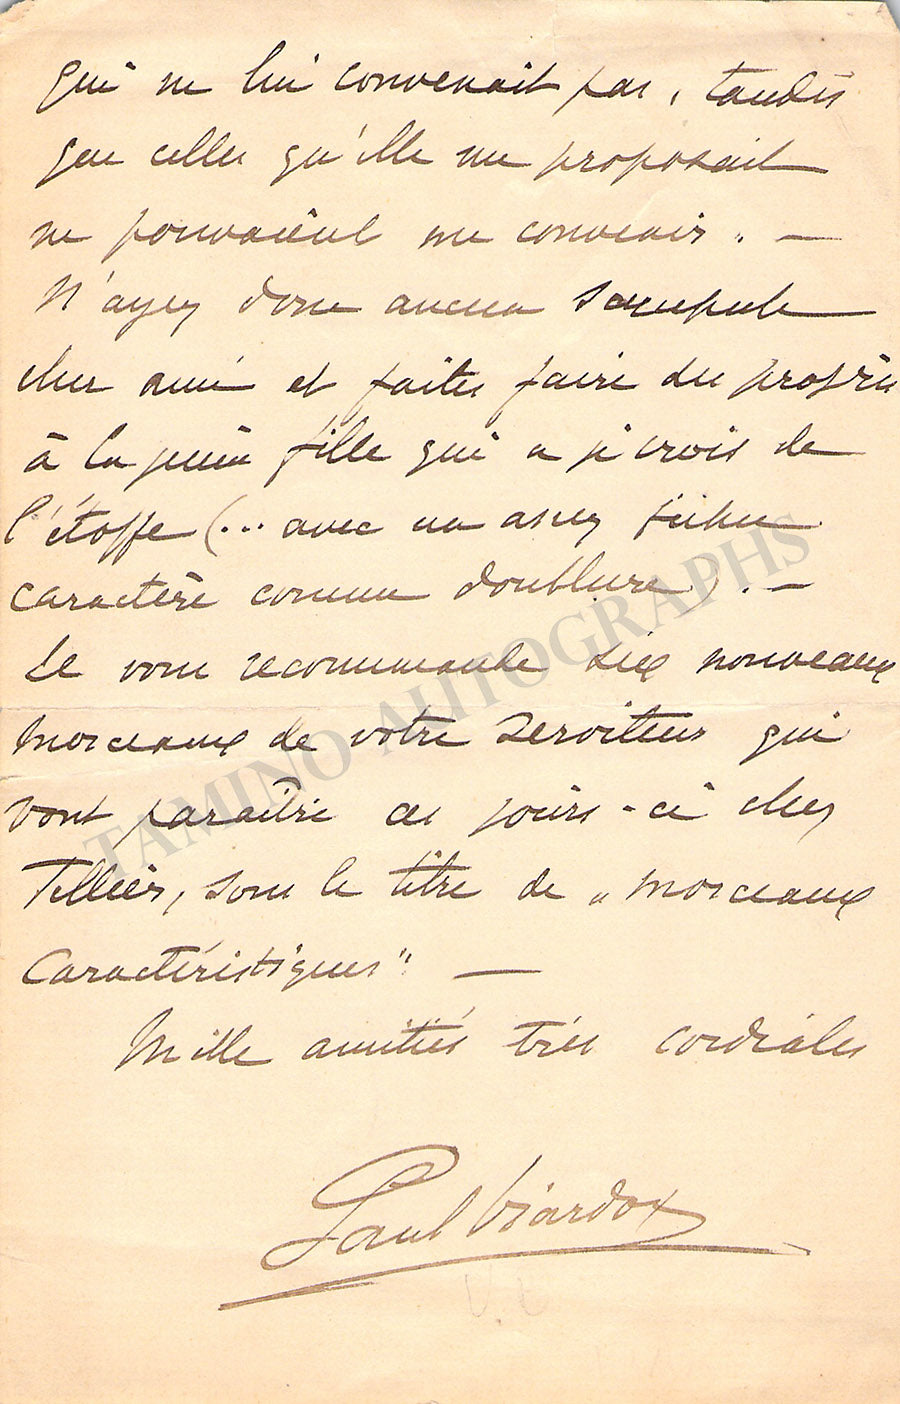 qui ne lui convenait pas, tandis
que celles qu'elle me proposait
ne pouvaient me convenir. —
N'ayez donc aucun scrupule
cher ami et faites faire des progrès
à la jeune fille qui a je crois de
l'étoffe (... avec un assez fichu
caractère comme doublure). —
Je vous recommande six nouveaux
morceaux de votre serviteur qui
vont paraître ces jours-ci chez
Tellier, sous le titre de "Morceaux
Caractéristiques" —
Mille amitiés très cordiales
Paul Viardot
TAMINO AUTOGRAPHS